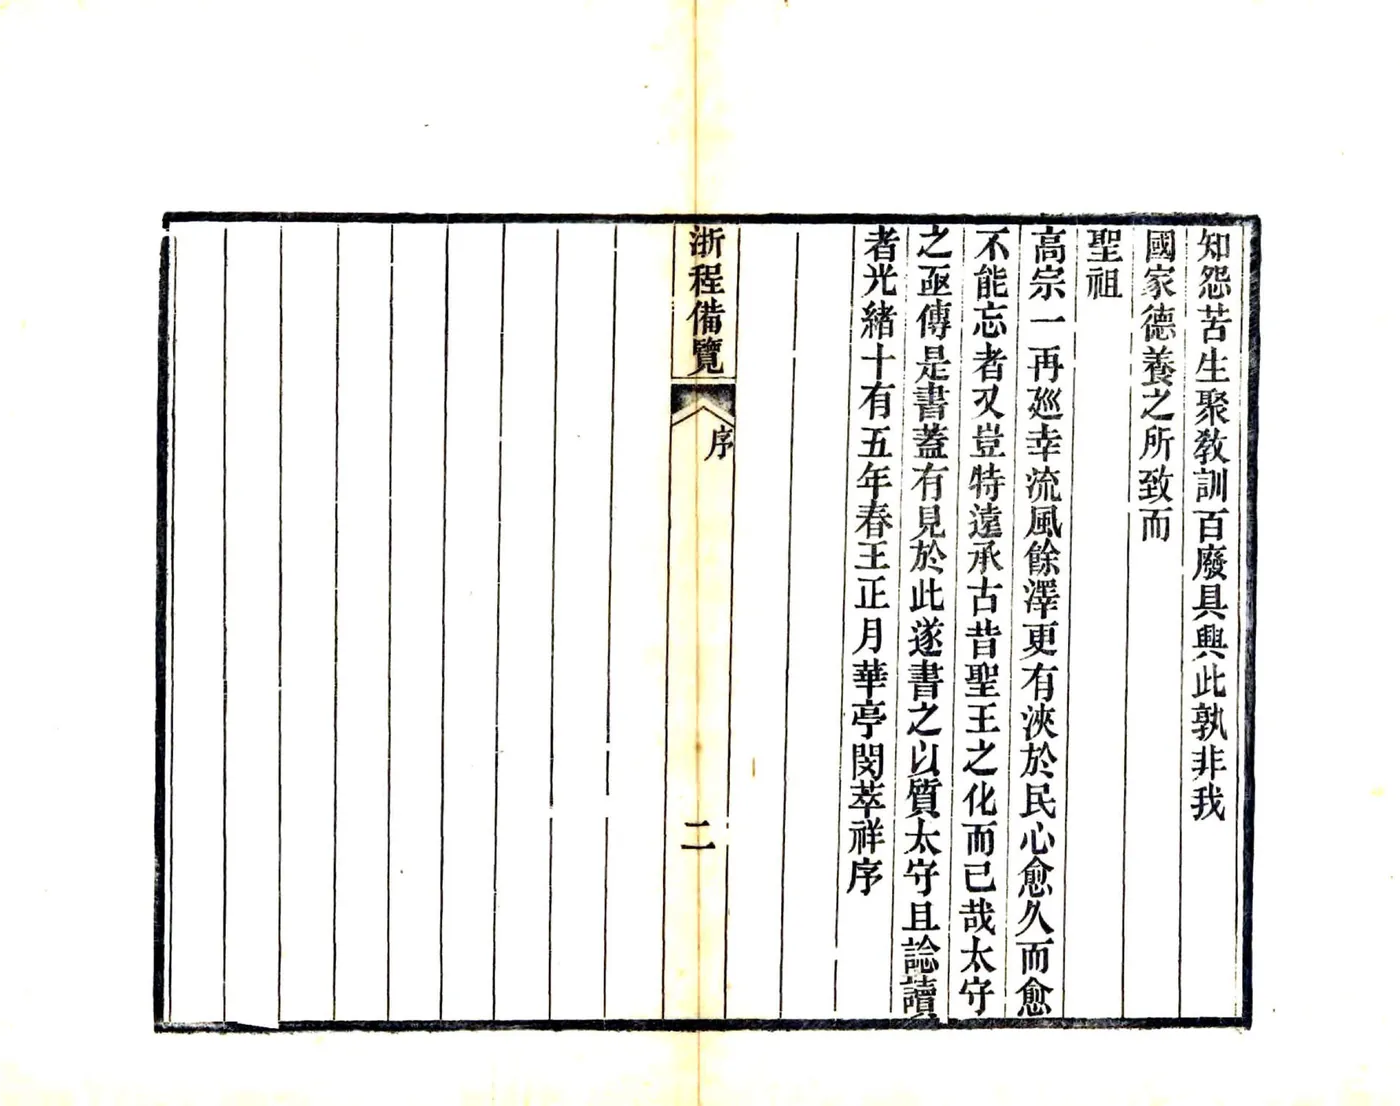 知怨苦生聚教訓百廢具興此孰非我
國家德養之所致而
聖祖
高宗一再廵幸流風餘澤更有浹於民心愈久而愈
不能忘者又豈特遠承古昔聖王之化而已哉太守
之亟傳是書蓋有見於此遂書之以質太守且諗讀
者光緒十有五年春王正月華亭閔萃祥序
浙程備覽
序
二